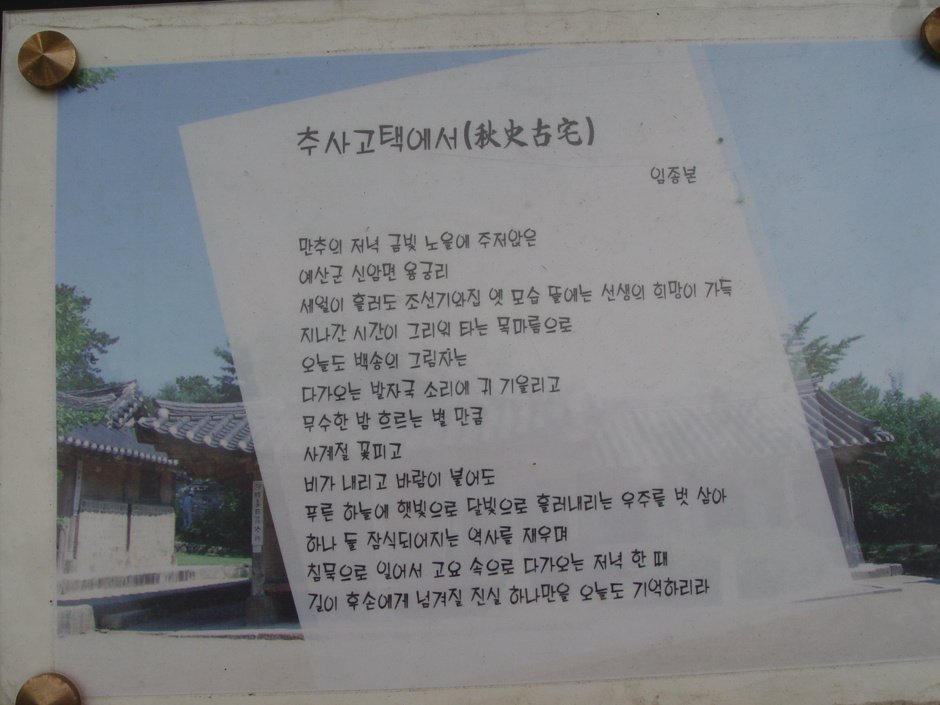 추사고택에서(秋史古宅)
임종본
만추의 저녁 금빛 노을에 주저앉은
예산군 신암면 용궁리
세월이 흘러도 조선기와집 옛 모습 뜰에는 선생의 희망이 가득
지나간 시간이 그리워 타는 목마름으로
오늘도 백송의 그림자는
다가오는 발자국 소리에 귀 기울리고
무수한 밤 흐르는 별 만큼
사계절 꽃피고
비가 내리고 바람이 불어도
푸른 하늘에 햇빛으로 달빛으로 흘러내리는 우주를 벗 삼아
하나 둘 잠식되어지는 역사를 재우며
침묵으로 일어서 고요 속으로 다가오는 저녁 한 때
길이 후손에게 넘겨질 진실 하나만을 오늘도 기억하리라